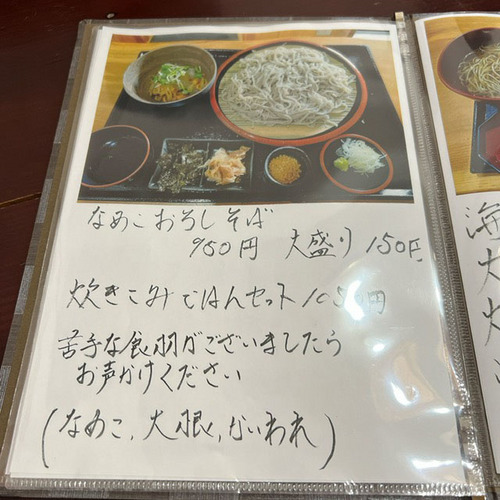 なめこおろしそば
950円 大盛り150円
炊きこみごはんセット 円
苦手な食羽がございましたら
お声がけください
(なめこ,大根,かいわれ)
海